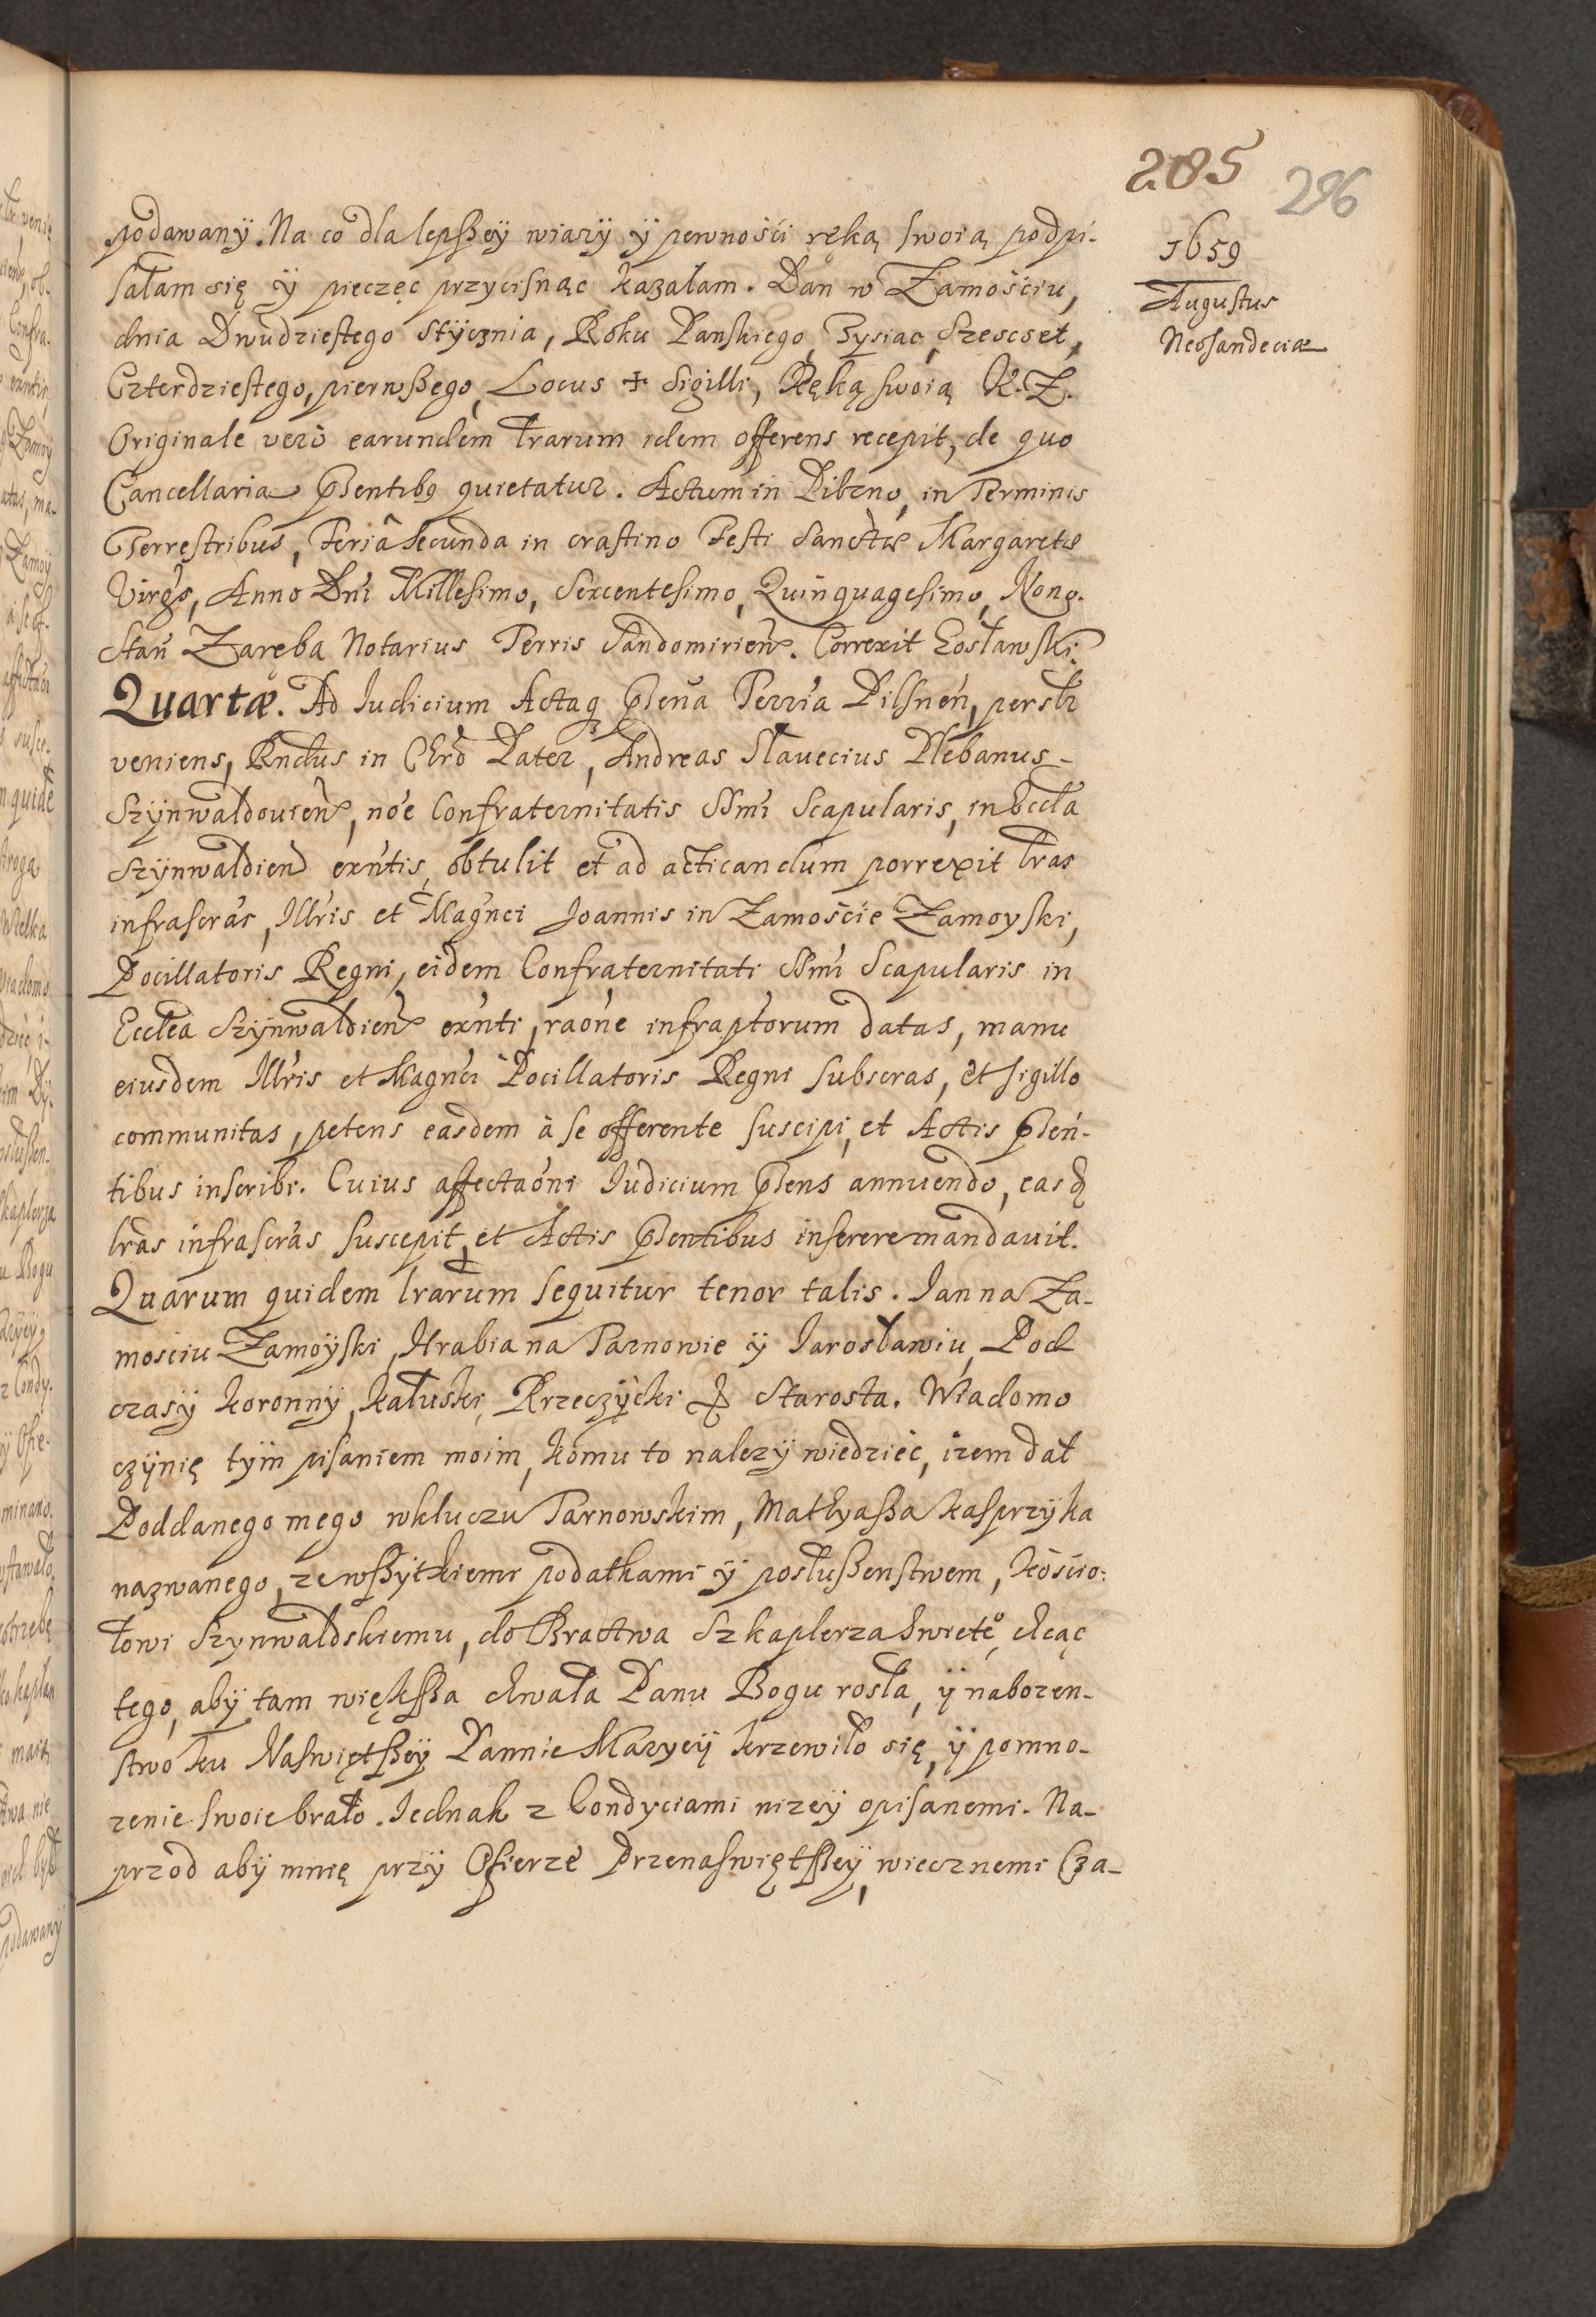 285
296
1659
Augustus
Neosandeciæ
podawanÿ. Na co dla lepßeÿ wiarÿ ÿ pewnośći ręką swoią podpi-
sałam się ÿ pieczęc przycisnąc kazałam. Dan w Zamośćiu,
dnia Dwudziestego Stÿcznia, Roku Panskiego, Tysiac, Szescset,
Czterdziestego, pierwßego, Locus + Sigilli, Ręką swoią K. Z.
Originale verò earundem lrarum idem offerens recepit, de quo
Cancellaria p̃sentibꝫ quietatur. Actum in Pilzno, in Terminis
Terrestribus, Feriâ Secunda in crastino Festi Sanctæ Margaretæ
Virg̃s, Anno Dni Millesimo, Sexcentesimo, Quinquagesimo, Nono.
Stañ Zaręba Notarius Terris Sandomirieñ. Correxit Łosławski.
Quartæ. Ad Iudicium Actaq p̃sena Terria Pilsneñ, perslr
veniens, Rndus in Chro Pater, Andreas Slavecius Plebanus
Szÿnwaldovieñ, noe Confraternitatis SSmi Scapularis, in Eccla
Szÿnwaldień exntis, obtulit et ad acticandum porrexit lras
infrascras, Illris et Magnci Joannis in Zamoście Zamoyski,
Pocillatoris Regni, eidem Confraternitati SSmi Scapularis in
Ecclea Szÿnwaldień exnti, raone infraptorum datas, manu
eiusdem Illris et Magnci Pocillatoris Regni subscras, et sigillo
communitas, petens easdem à se offerente suscipi, et Actis p̃sen-
tibus inscribi. Cuius affectaoni Iudicium p̃sens annuendo, easđ
lras infrascras suscepit et Actis p̃sentibus inserere mandavit.
Quarum quidem lrarum sequitur tenor talis. Jan na Za-
mosciu Zamoÿski, Hrabia na Tarnowie ÿ Iarosławiu, Pod
czasÿ koronnÿ, kałuski, Rzeczÿcki & Starosta. Wiadomo
czÿnię tÿm pisaniem moim, komu to nalezÿ wiedzieć, izem dał
Poddanego mego w kluczu Tarnowskim, Mathyaßa Kasprzÿka
nazwanego, ze wßÿtkiemi podatkami ÿ posłußenstwem, kośćio-
łowi Szynwaldskiemu, do Bractwa Szkaplerza Swiete͛, chcąc
tego, abÿ tam więkßa chwała Panu Bogu rosła, ÿ nabozen-
stwo ku Naswiętßeÿ Pannie Maryeÿ krzewiło się, ÿ pomno-
zenie swoie brało. Iednak z Condyciami nizeÿ opisanemi. Na-
przod abÿ mnię przÿ Ofierze Przenaswiętßeÿ, wiecznemi Cza-